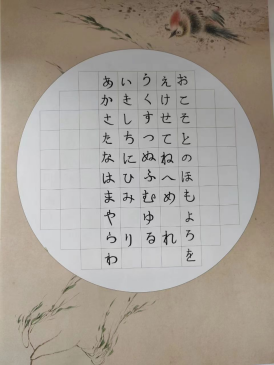 あかさたなはまやらわ
いきしちにひみ り
うくすつぬふむゆる
えけせてねへめ れ
おこそとのほもよろを